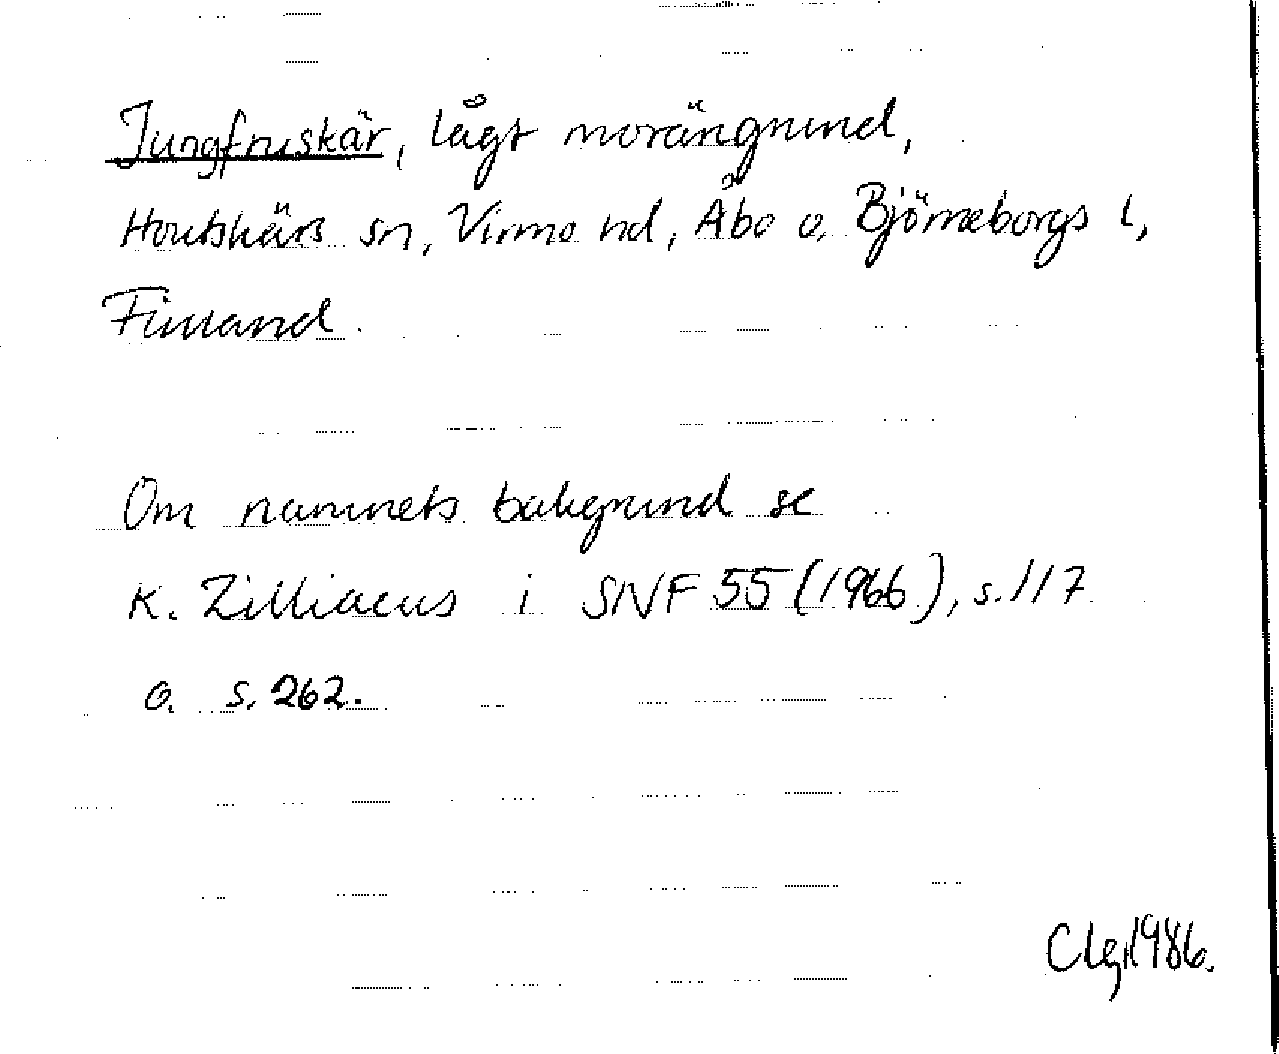 Jungfruskär, lågt moränggrund,
Houtskärs sn, Virmo hd, Åbo o. Björneborgs l,
Finland.
Om namnets bakgrund se
K. Zilliacus i SNF 55 (1966), s. 117
o. s. 262.
Clg 1986.